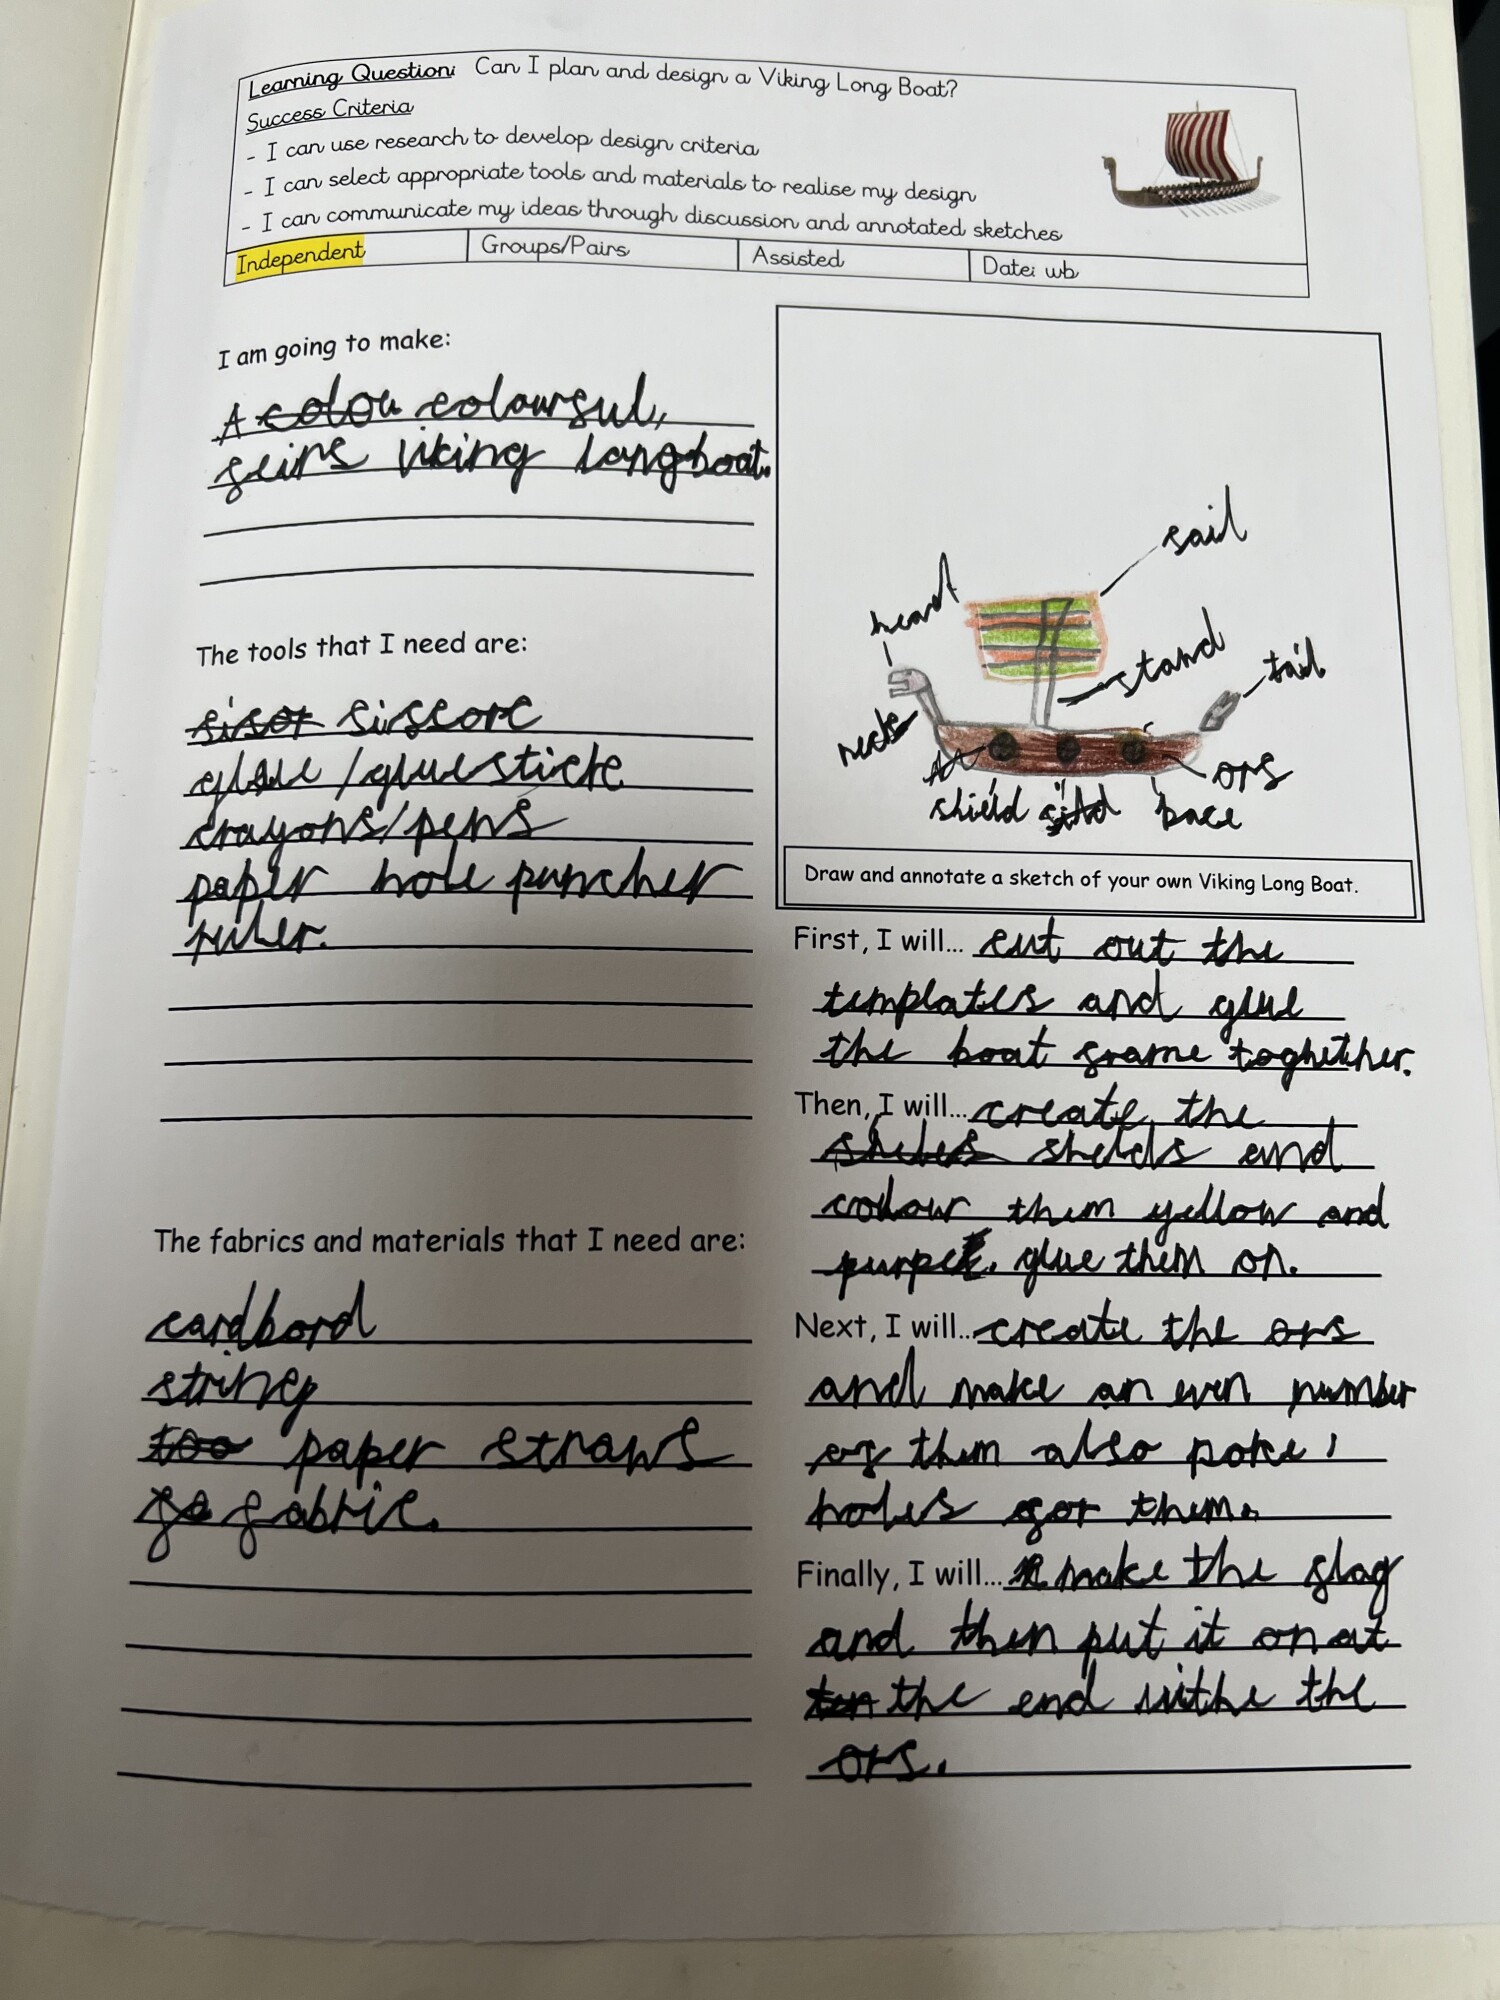 Learning Question: Can I plan and design a Viking Long Boat?
Success Criteria
- I can use research to develop design criteria
- I can select appropriate tools and materials to realise my design
- I can communicate my ideas through discussion and annotated sketches
Independent Groups/Pairs Assisted Date: wb
I am going to make:
A colou colourful,
feirs viking longboat.
The tools that I need are:
sisor sissore
glue/gluesticke
crayons/pens
paper hole puncher
ruler.
The fabrics and materials that I need are:
cardbord
string
too paper straws
fabric.
sail
head
stand
tail
neck
ors
shield
bace
Draw and annotate a sketch of your own Viking Long Boat.
First, I will... cut out the
templates and glue
the boat frame toghether.
Then, I will... create the
shelds and
colour them yellow and
purpel. glue them on.
Next, I will... create the ors
and make an even number
of them also poke
holes for them.
Finally, I will... make the flag
and then put it on at
the end withe the
ors.